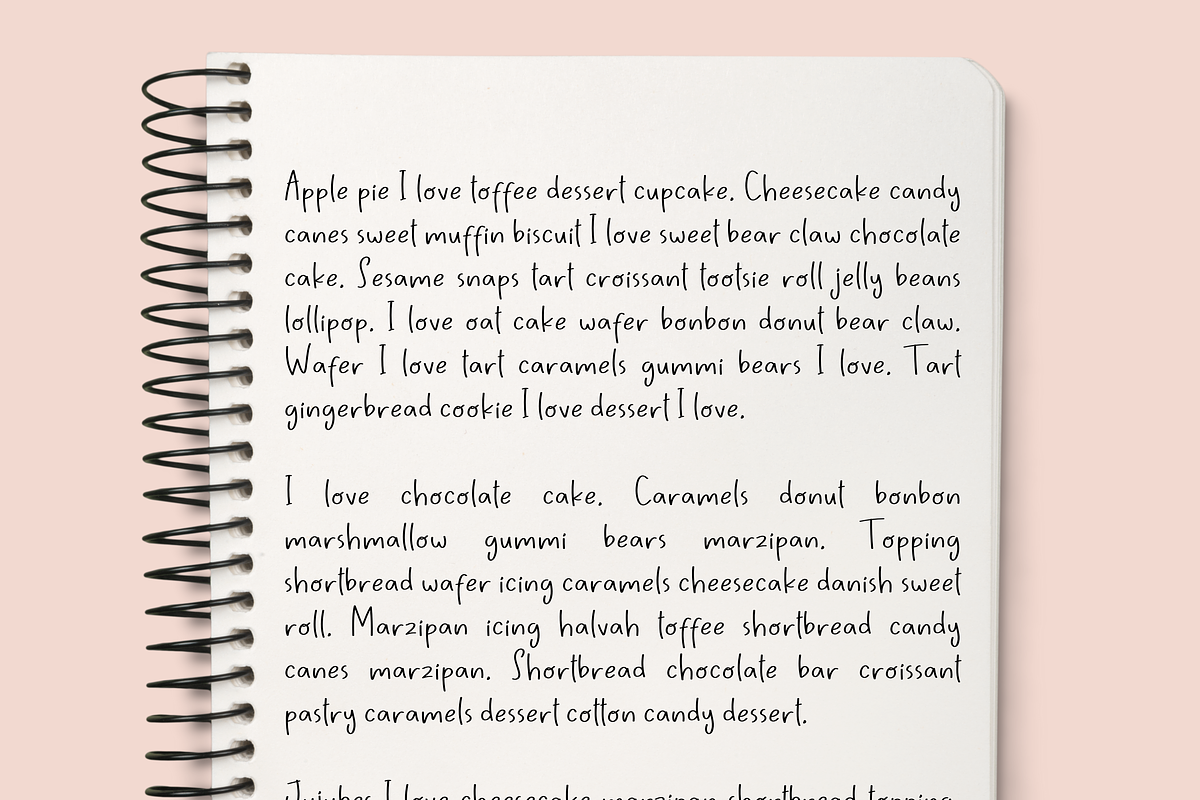 Apple pie I love toffee dessert cupcake. Cheesecake candy
canes sweet muffin biscuit I love sweet bear claw chocolate
cake. Sesame snaps tart croissant tootsie roll jelly beans
lollipop. I love oat cake wafer bonbon donut bear claw.
Wafer I love tart caramels gummi bears I love. Tart
gingerbread cookie I love dessert I love.
I love chocolate cake. Caramels donut bonbon
marshmallow gummi bears marzipan. Topping
shortbread wafer icing caramels cheesecake danish sweet
roll. Marzipan icing halvah toffee shortbread candy
canes marzipan. Shortbread chocolate bar croissant
pastry caramels dessert cotton candy dessert.
Jujubes I love cheesecake marzipan shortbread topping.